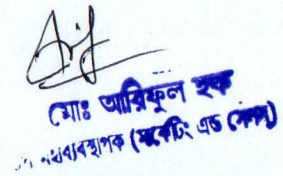 মোঃ আরিফুল হক
ব্যবস্থাপক (মার্কেটিং এন্ড সেলস)